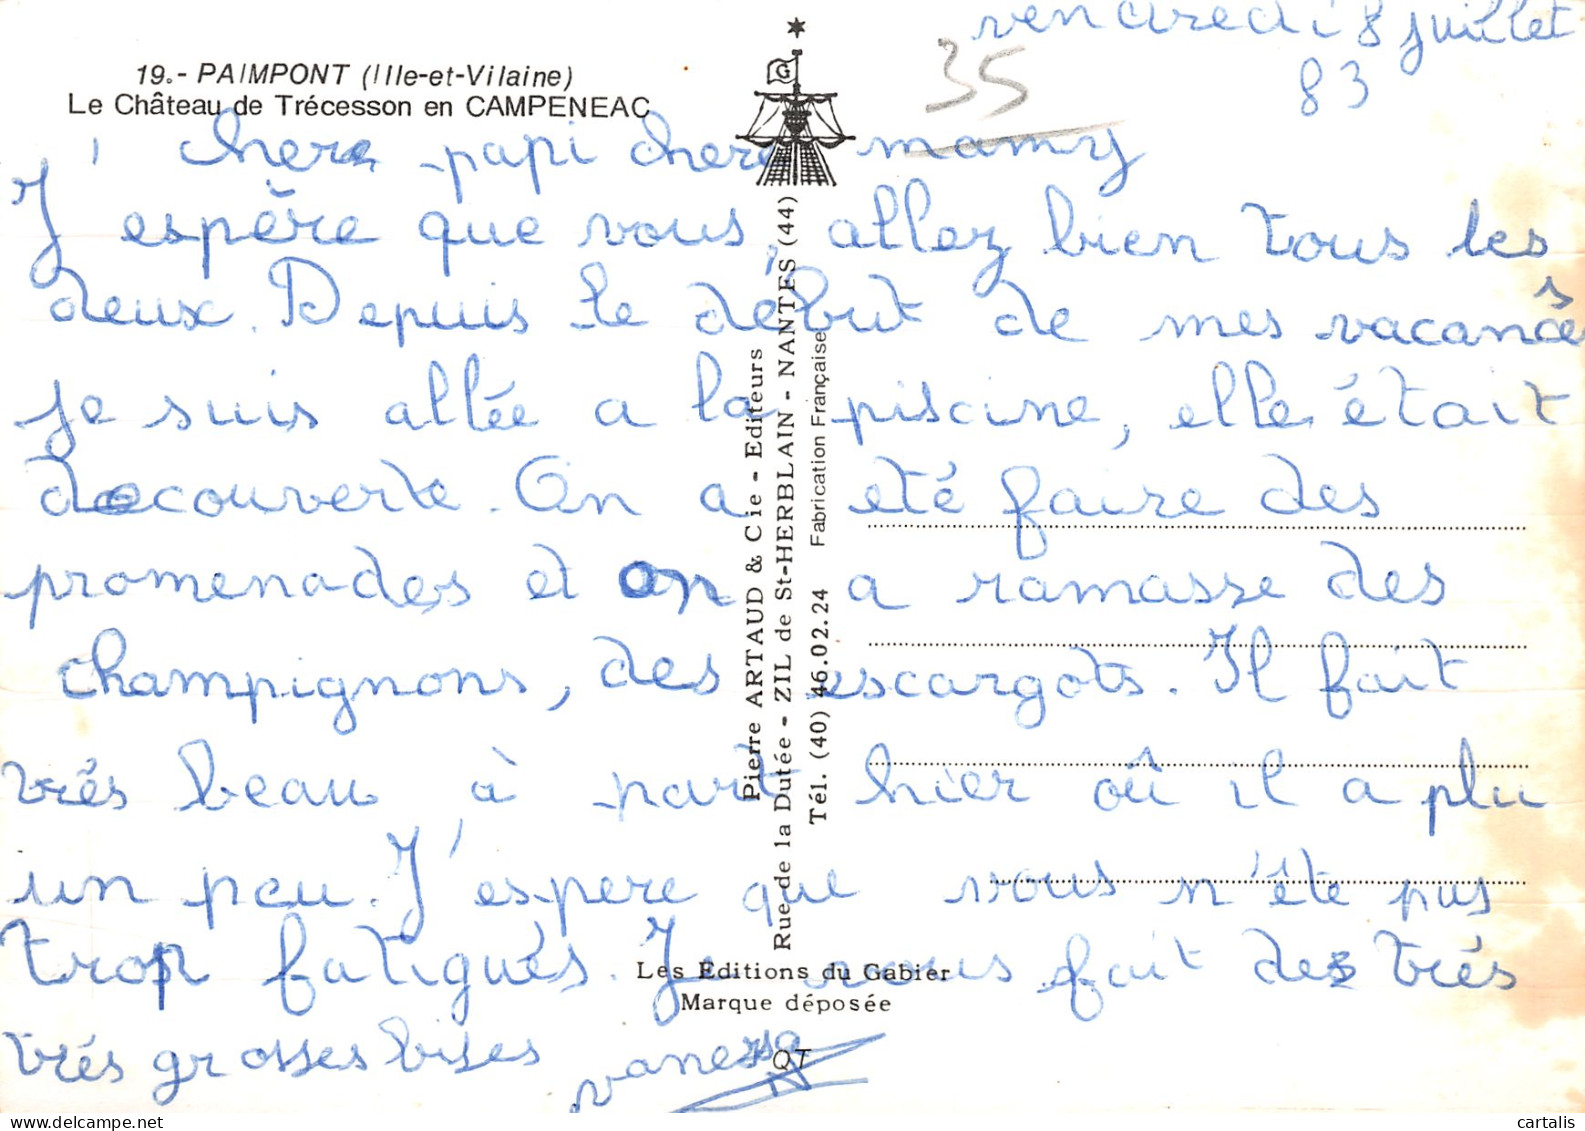 vendredi 8 juillet
83
35
19.- PAIMPONT (Ille-et-Vilaine)
Le Château de Trécesson en CAMPENEAC
chere papi chere mamy
J'espère que vous, allez bien tous les
deux. Depuis le début de mes vacances
je suis allée a la piscine, elle était
decouverte. On a eté faire des
promenades et on a ramasse des
champignons, des escargots. Il fait
trés beau à part hier oû il a plu
un peu. J'espere que vous n'ête pas
trop fatigués. Je vous fait des trés
trés grosses bises vanessa
Pierre ARTAUD & Cie - Editeurs
Rue de la Dutée - ZIL de St-HERBLAIN - NANTES (44)
Tél. (40) 46.02.24 Fabrication Française
Les Editions du Gabier
Marque déposée
QT
cartalis